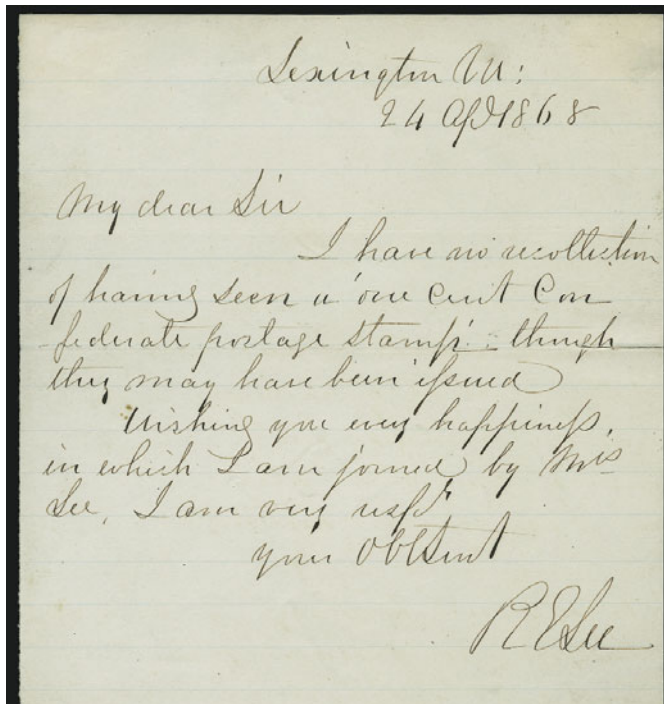 Lexington Va:
24 Apl 1868
My dear Sir
I have no recollection
of having seen a 'one cent Con
-federate postage stamp' - though
they may have been issued
Wishing you every happiness,
in which I am joined by Mrs
Lee, I am very respy
your Obt Servt
R E Lee